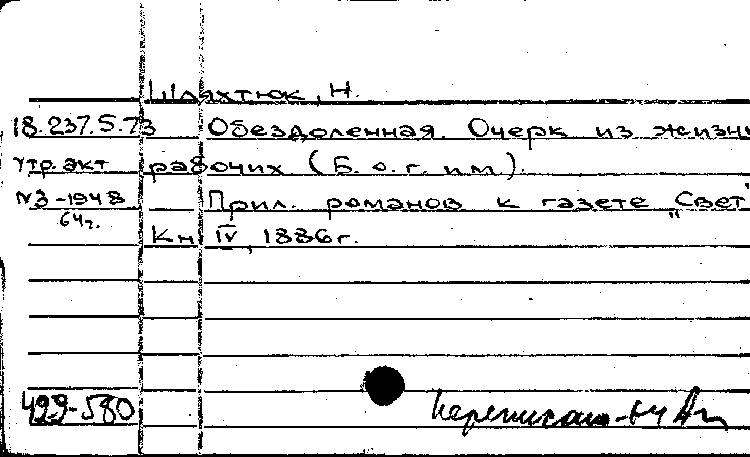 Шляхтюк, Н.
18.237.5.73 Обездоленная. Очерк из жизни
утр. акт рабочих (Б. о. г. и м).
№3-1948 Прил. романов к газете „Свет
64г.
Кн. IV, 1886г.
499-580